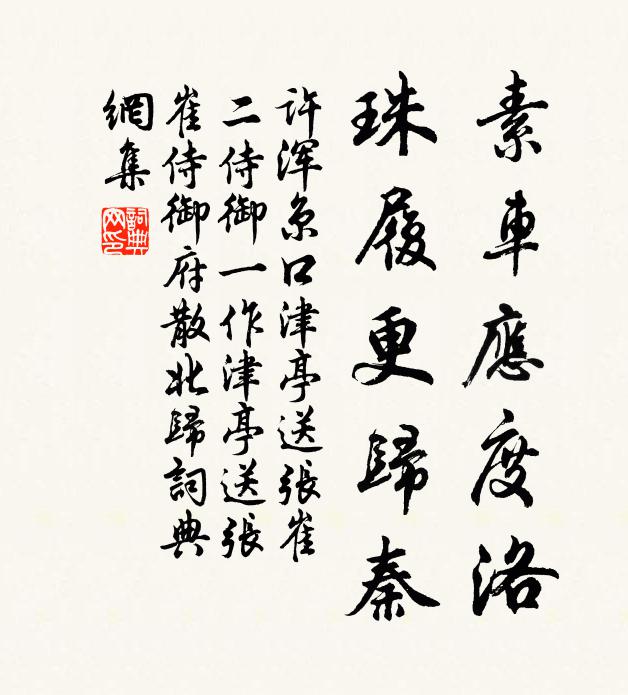 素車應度洛
珠履更歸秦
許渾京口津亭送張崔
二侍御一作津亭送張
崔侍御府散北歸詞典
網集
詞典
网印